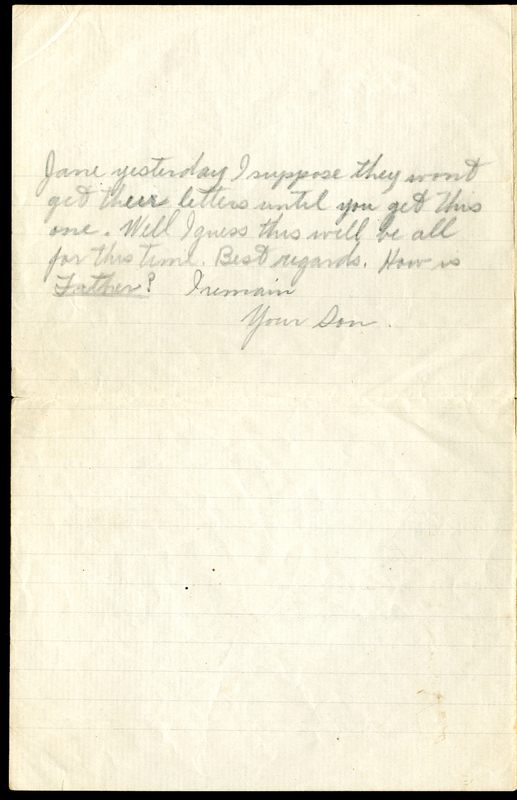 Jane yesterday I suppose they wont
get their letters until you get this
one. Well I guess this will be all
for this time. Best regards. How is
Father? I remain
Your Son.